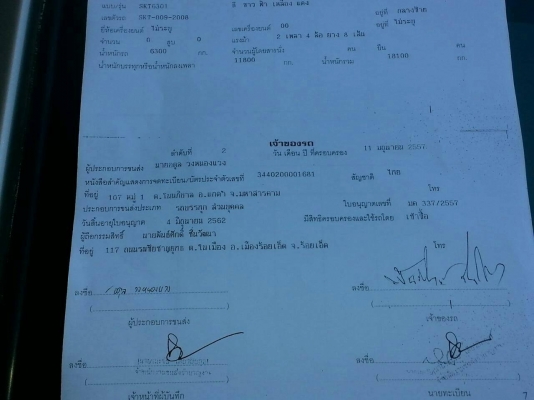 แบบ/รุ่น SKT6301 สี ขาว ฟ้า เหลือง แดง
เลขตัวรถ SKT-009-2008 อยู่ที่ กลางซ้าย
ยี่ห้อเครื่องยนต์ ไม่ระบุ เลขเครื่องยนต์ 00 อยู่ที่ ไม่ระบุ
จำนวน 0 สูบ 0 แรงม้า 2 เพลา 4 ล้อ ยาง 8 เส้น
น้ำหนักรถ 6300 กก. จำนวนผู้โดยสารนั่ง คน ยืน คน
น้ำหนักบรรทุกหรือน้ำหนักลงเพลา 11800 กก. น้ำหนักรวม 18100 กก.
เจ้าของรถ
ลำดับที่ 2 วัน เดือน ปี ที่ครอบครอง 11 มิถุนายน 2557
ผู้ประกอบการขนส่ง
หนังสือสำคัญแสดงการจดทะเบียน/บัตรประจำตัวเลขที่ 3440200001681 สัญชาติ ไทย
ที่อยู่ 167 หมู่ 1 จ.มหาสารคาม โทร
ประกอบการขนส่งประเภท รถบรรทุก ส่วนบุคคล ใบอนุญาตเลขที่ มค 337/2557
วันสิ้นอายุใบอนุญาต 4 มิถุนายน 2562 มีสิทธิครอบครองและใช้รถโดย เช่าซื้อ
ผู้ถือกรรมสิทธิ์
ที่อยู่ 117 ต.ในเมือง อ.เมืองร้อยเอ็ด จ.ร้อยเอ็ด โทร
ลงชื่อ ลงชื่อ
ผู้ประกอบการขนส่ง เจ้าของรถ
ลงชื่อ ลงชื่อ
เจ้าหน้าที่ผู้บันทึก นายทะเบียน
7